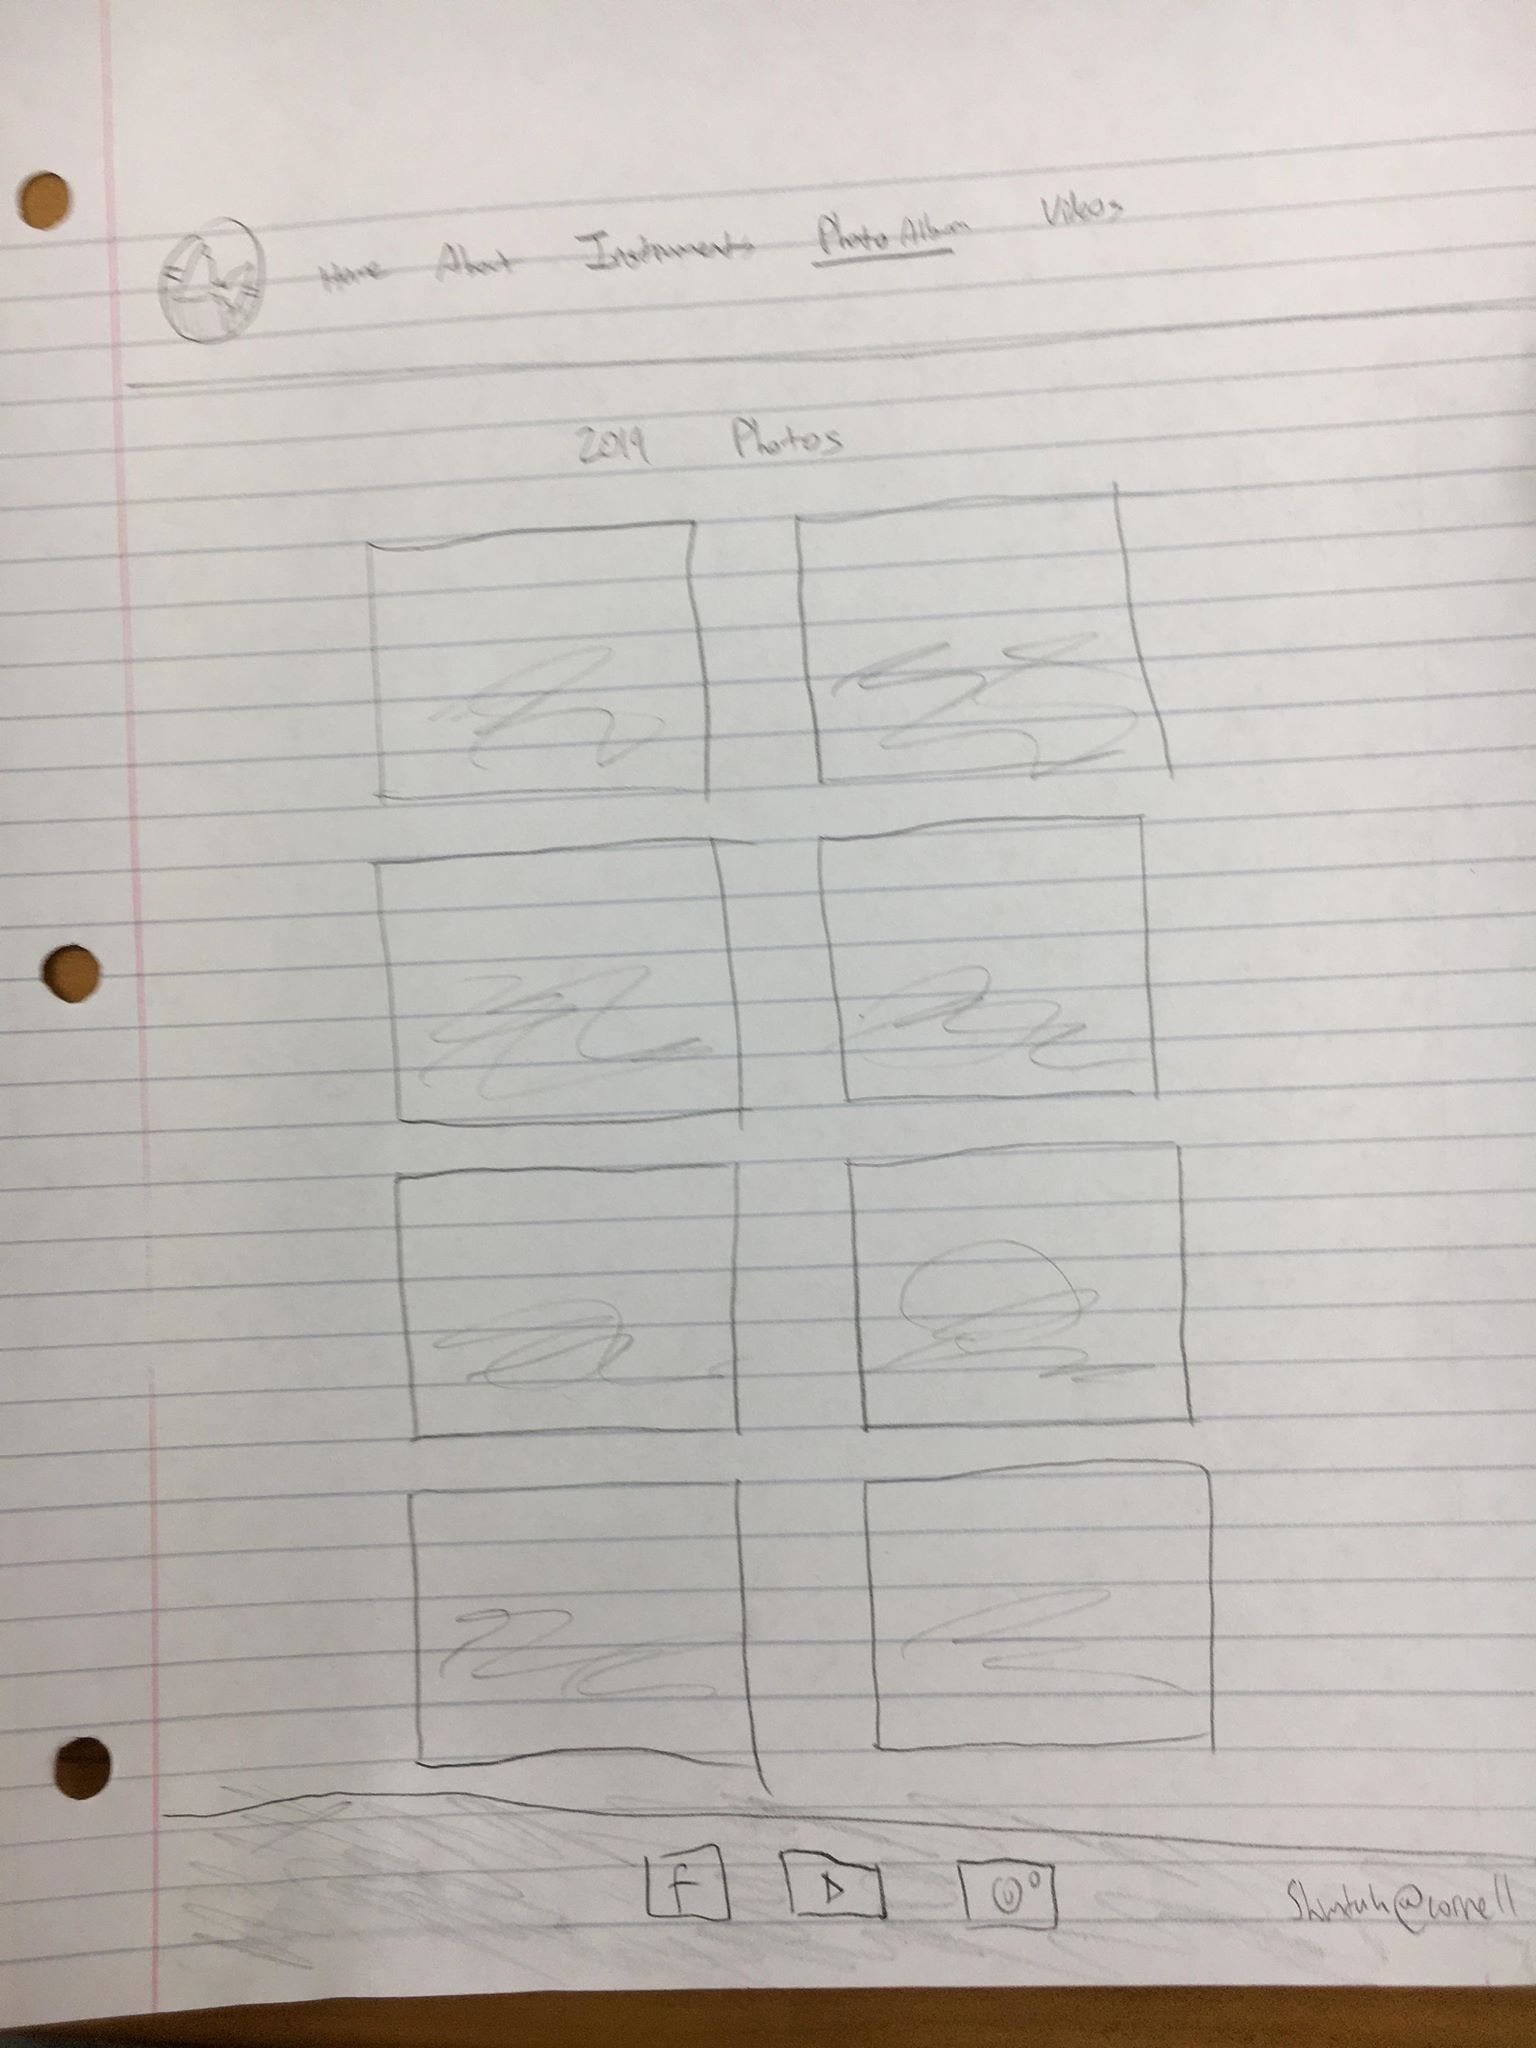 Home About Instruments Photo Album Videos
2019 Photos
f
@cornell